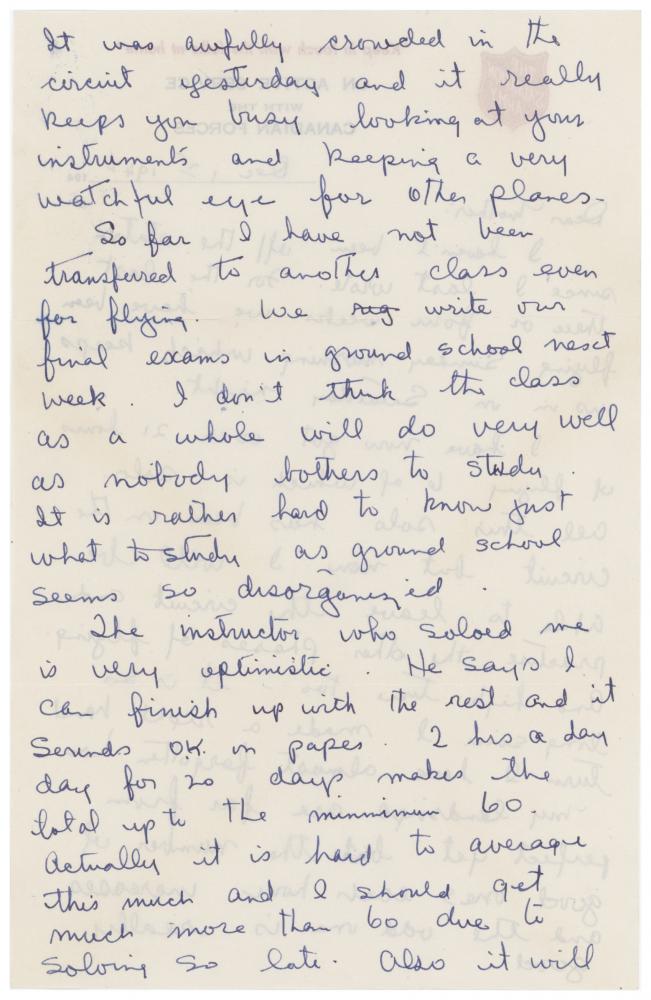 It was awfully crowded in the
circuit yesterday and it really
keeps you busy looking at your
instruments and keeping a very
watchful eye for other planes.
So far I have not been
transferred to another class even
for flying. We write our
final exams in ground school next
week. I don't think the class
as a whole will do very well
as nobody bothers to study.
It is rather hard to know just
what to study as ground school
seems so disorganized.
The instructor who soloed me
is very optimistic. He says I
can finish up with the rest and it
sounds O.K. on paper. 2 hrs a day
day for 20 days makes the
total up to the minnimum 60.
Actually it is hard to average
this much and I should get
much more than 60 due to
soloing so late. Also it will